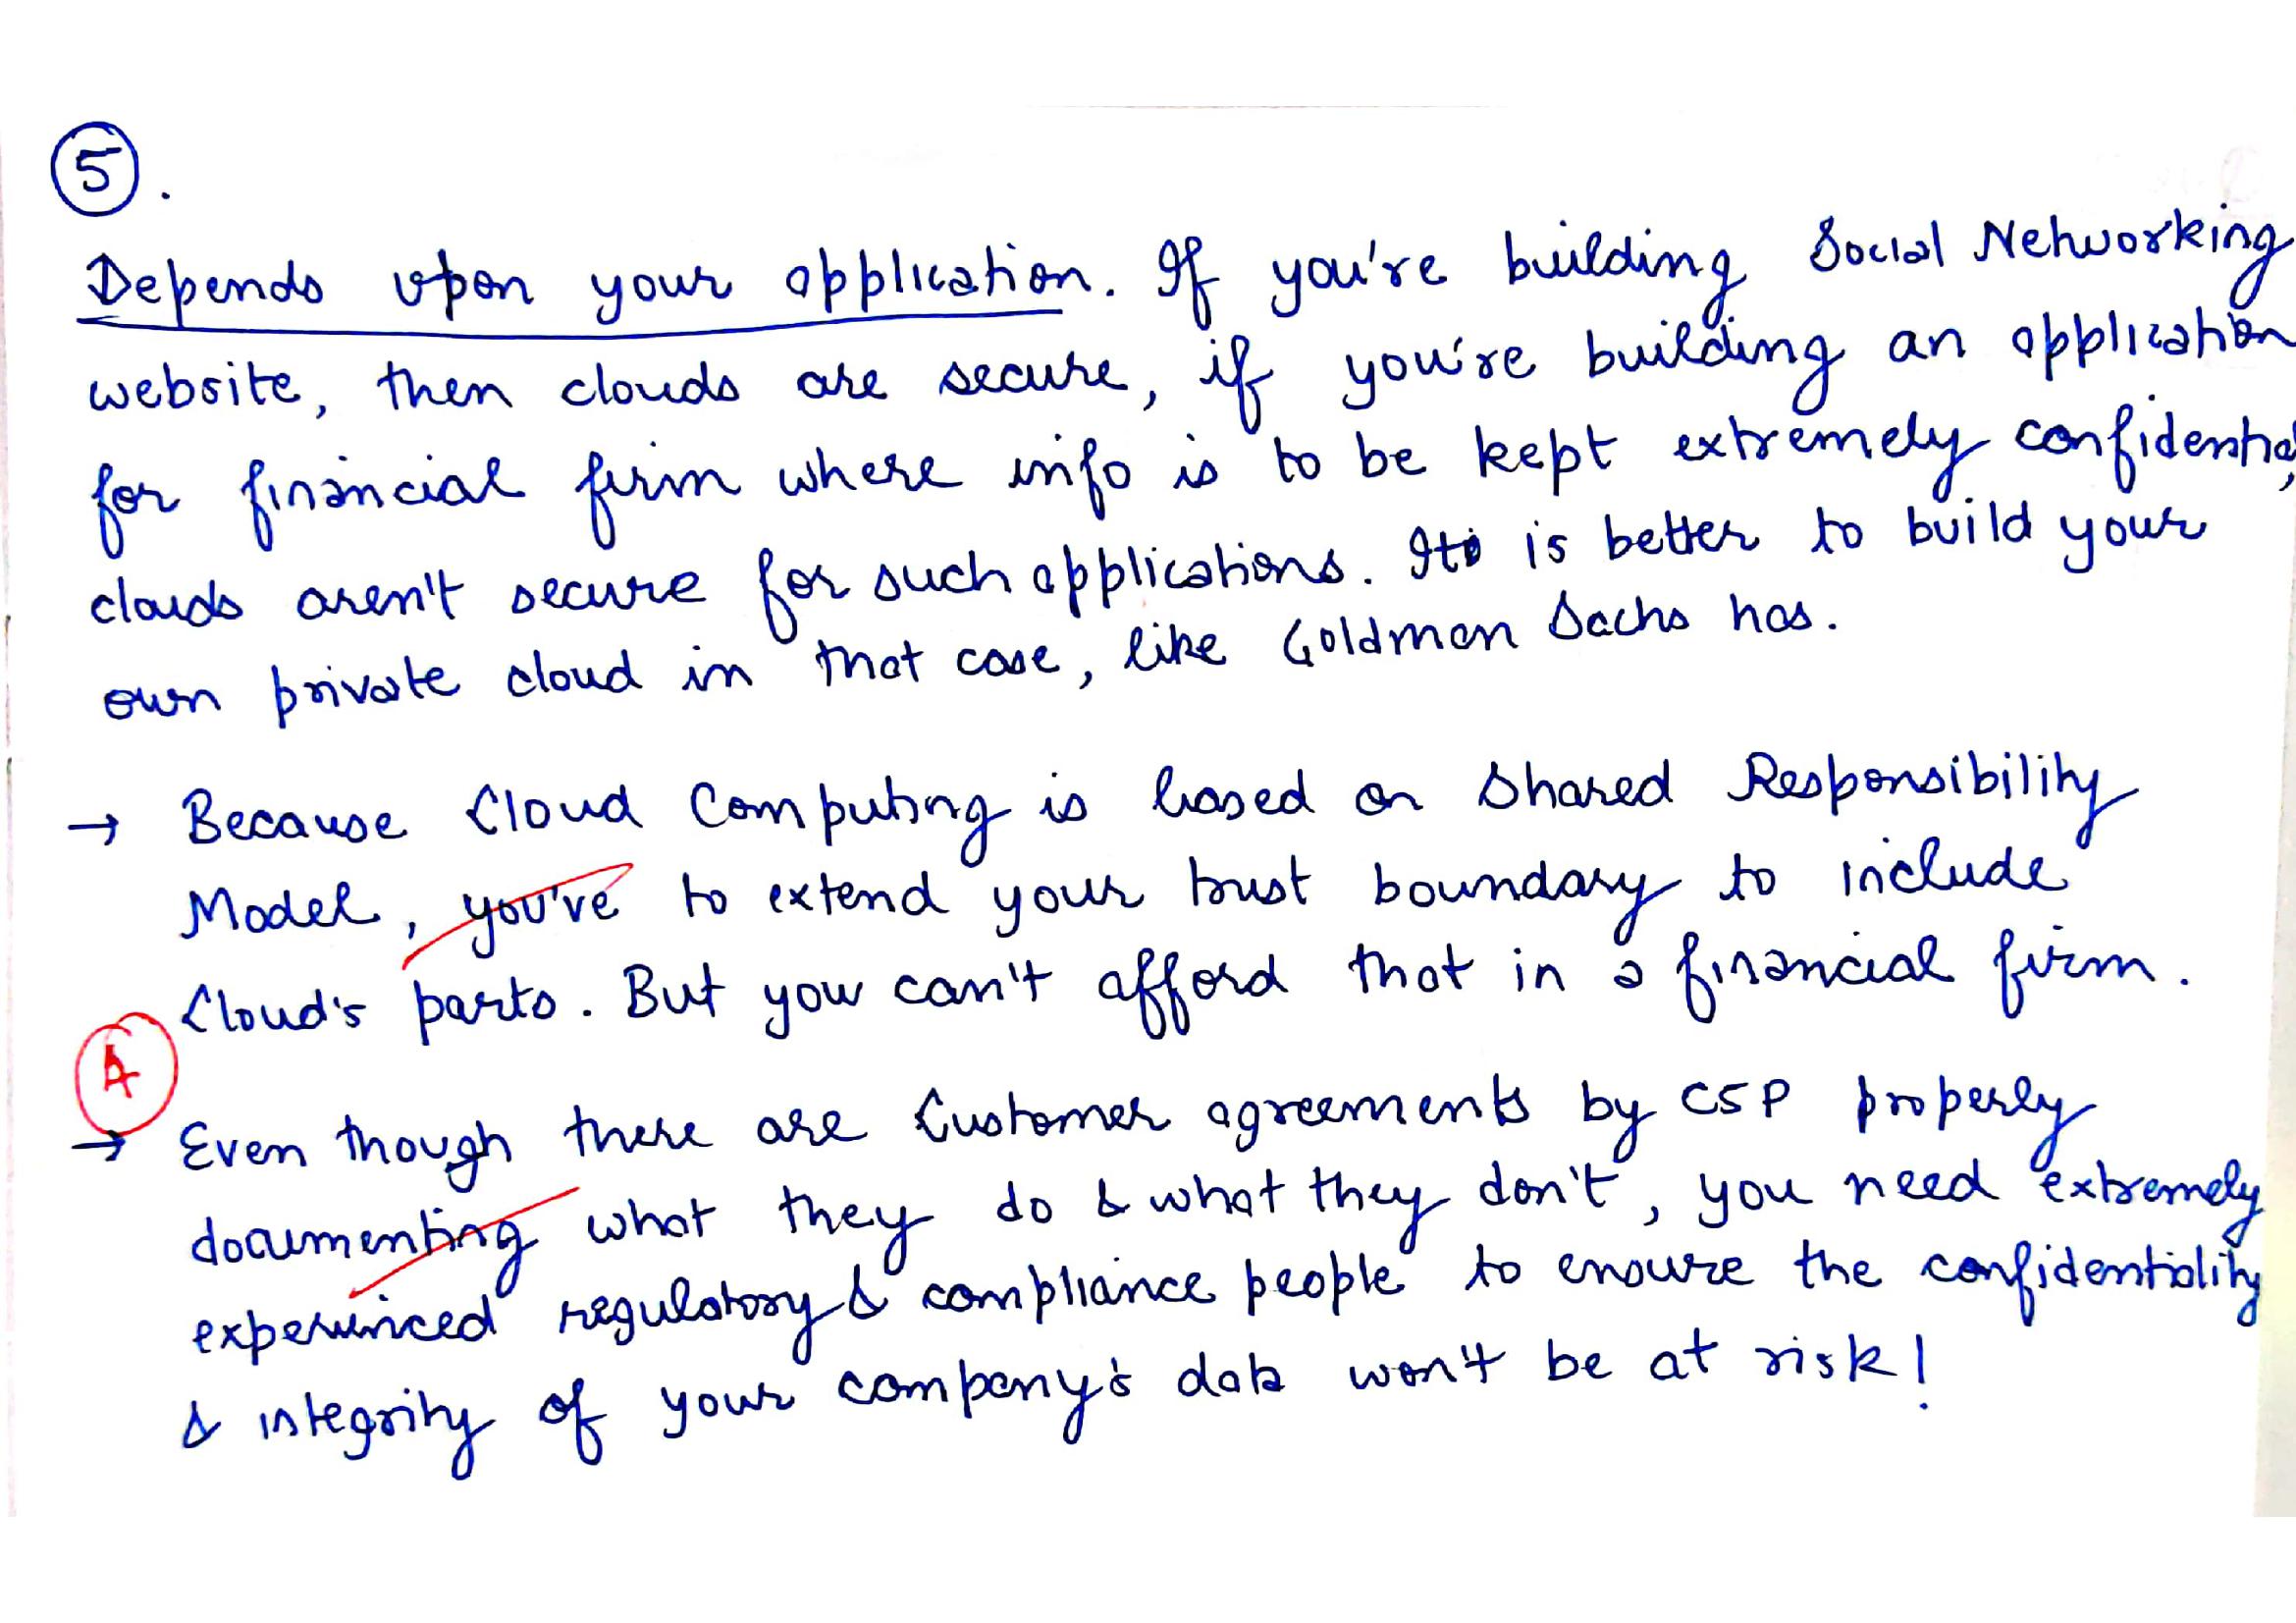 5.
Depends upon your application. If you're building Social Networking
website, then clouds are secure, if you're building an application
for financial firm where info is to be kept extremely confidential,
clouds aren't secure for such applications. It is better to build your
own private cloud in that case, like Goldman Sachs has.
→ Because Cloud Computing is based on Shared Responsibility
Model, you've to extend your trust boundary to include
Cloud's parts. But you can't afford that in a financial firm.
→ Even though there are Customer agreements by CSP properly
documenting what they do & what they don't, you need extremely
experienced regulatory & compliance people to ensure the confidentiality
& integrity of your company's data won't be at risk!